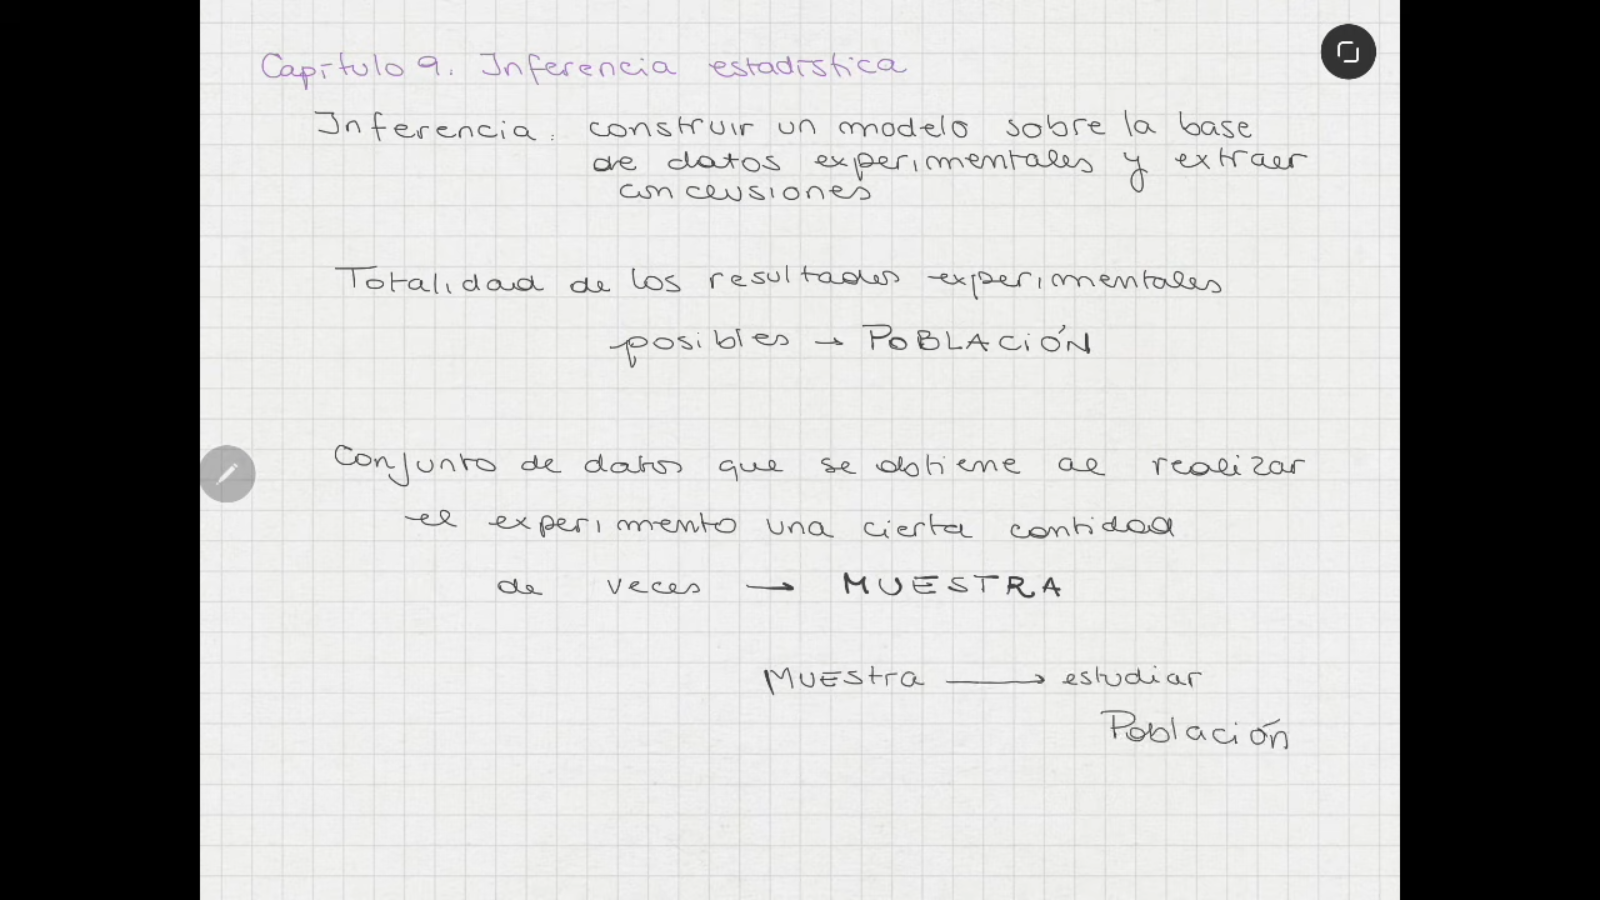 Capítulo 9. Inferencia estadística
Inferencia: construir un modelo sobre la base
de datos experimentales y extraer
conclusiones
Totalidad de los resultados experimentales
posibles → POBLACIÓN
Conjunto de datos que se obtiene al realizar
el experimento una cierta cantidad
de veces → MUESTRA
Muestra → estudiar
Población